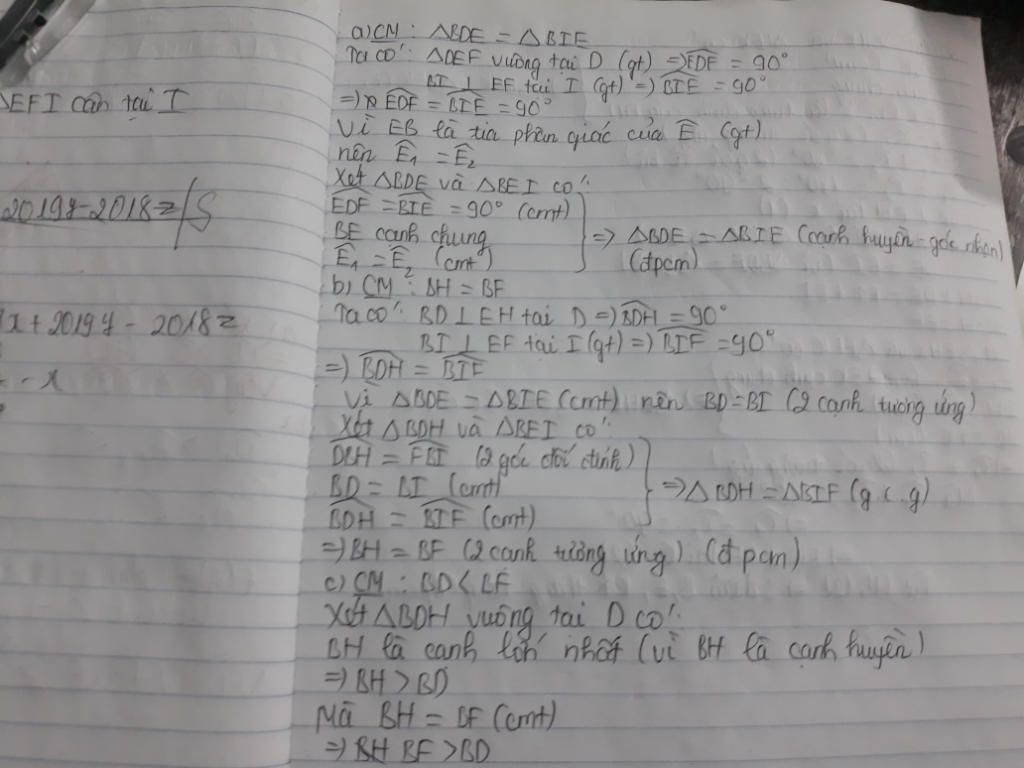 ΔEFI cân tại I
2019y-2018z/S
x + 2019y - 2018z
- x
a) CM : ΔBDE = ΔBIE
Ta có: ΔDEF vuông tại D (gt) => EDF = 90°
BI ⊥ EF tại I (gt) => BIE = 90°
=> EDF = BIE = 90°
Vì EB là tia phân giác của Ê (gt)
nên Ê1 = Ê2
Xét ΔBDE và ΔBEI có:
EDF = BIE = 90° (cmt)
BE cạnh chung
Ê1 = Ê2 (cmt)
=> ΔBDE = ΔBIE (cạnh huyền - góc nhọn)
(đpcm)
b) CM : BH = BF
Ta có: BD ⊥ EH tại D => BDH = 90°
BI ⊥ EF tại I (gt) => BIF = 90°
=> BDH = BIF
Vì ΔBDE = ΔBIE (cmt) nên BD = BI (2 cạnh tương ứng)
Xét ΔBDH và ΔBEI có:
DBH = FBI (2 góc đối đỉnh)
BD = BI (cmt)
BDH = BIF (cmt)
=> ΔBDH = ΔBIF (g.c.g)
=> BH = BF (2 cạnh tương ứng) (đpcm)
c) CM : BD < BF
Xét ΔBDH vuông tại D có:
BH là cạnh lớn nhất (vì BH là cạnh huyền)
=> BH > BD
Mà BH = BF (cmt)
=> BH BF > BD